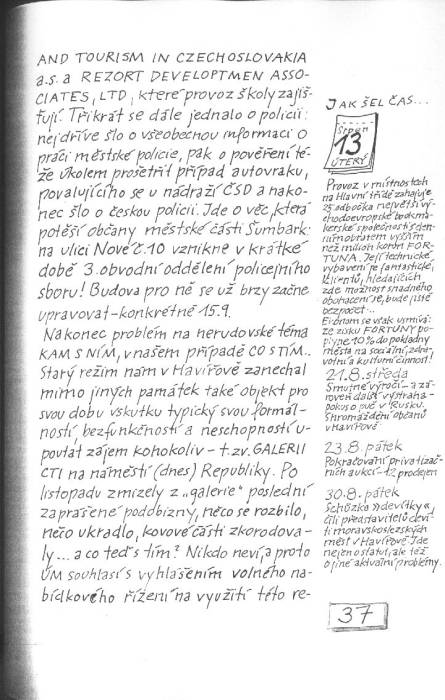 AND TOURISM IN CZECHOSLOVAKIA
a.s. a REZORT DEVELOPTMEN ASSO-
CIATES, LTD, které provoz školy zajiš-
ťují. Třikrát se dále jednalo o policii:
nejdříve šlo o všeobecnou informaci o
práci městské policie, pak o pověření té-
že úkolem prošetřit případ autovraku,
povalujícího se u nádraží ČSD a nako-
nec šlo o českou policii. Jde o věc, která
potěší občany městské části Šumbark:
na ulici Nové č.10 vznikne v krátké
době 3. obvodní oddělení policejního
sboru! Budova pro ně se už brzy začne
upravovat-konkrétně 15.9.
Nakonec problém na nerudovské téma
KAM S NÍM, v našem případě CO S TÍM..
Starý režim nám v Havířově zanechal
mimo jiných památek také objekt pro
svou dobu vskutku typický svou formál-
ností, bezfunkčností a neschopností u-
poutat zájem kohokoliv - t.zv. GALERII
CTI na náměstí (dnes) Republiky. Po
listopadu zmizely z „galerie" poslední
zaprášené podobizny, něco se rozbilo,
něco ukradlo, kovové části zkorodova-
ly... a co teď s tím? Nikdo neví, a proto
ÚM souhlasí s vyhlášením volného na-
bídkového řízení na využití této re-
JAK ŠEL ČAS...
SRPEN
13
ÚTERÝ
Provoz v místnostech
na Hlavní třídě zahajuje
25. odbočka největší vý-
chodoevropské bookma-
kerské společnosti s den-
ním obratem vyšším
než milion korun FOR-
TUNA. Její technické
vybavení je fantastické,
klientů, hledajících
zde možnost snadného
obohacení se, bude jistě
bezpočet...
Ekonom se však usmívá:
ze zisku FORTUNY po-
plyne 10% do pokladny
města na sociální, zdra-
votní a kulturní činnost!
21.8. středa
Smutné výročí - a zá-
roveň další výstraha -
pokus o puč v Rusku.
Shromáždění občanů
v Havířově.
23.8. pátek
Pokračování privatizač-
ních aukcí - 12 prodejen
30.8. pátek
Schůzka »devítky«,
čili představitelů devi-
ti moravskoslezských
měst v Havířově. Jde
nejen o statut, ale též
o jiné aktuální problémy.
37